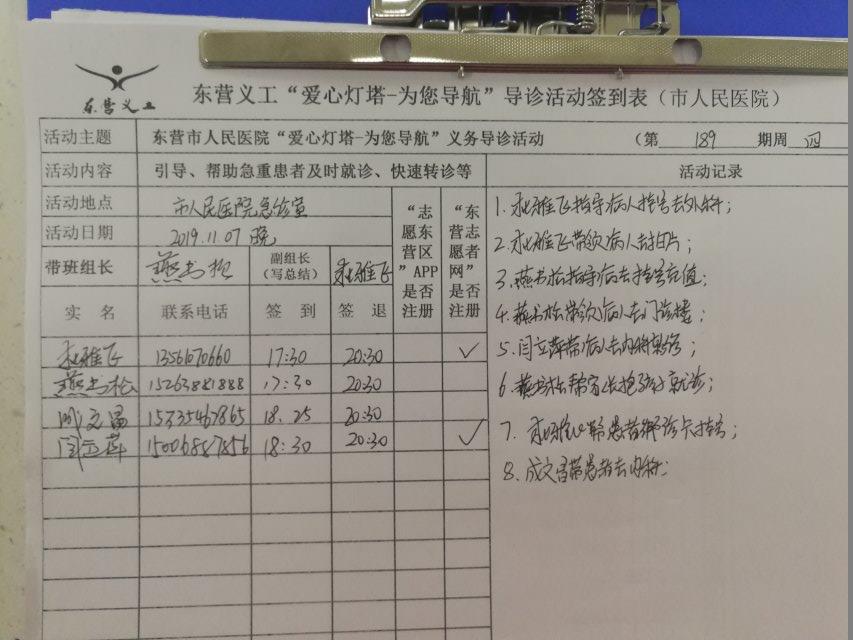 东营义工
东营义工“爱心灯塔-为您导航”导诊活动签到表（市人民医院）
活动主题 东营市人民医院“爱心灯塔-为您导航”义务导诊活动 （第 189 期周 四
活动内容 引导、帮助急重患者及时就诊、快速转诊等 活动记录
活动地点 市人民医院急诊室
活动日期 2019.11.07 晚
带班组长 燕书松 副组长（写总结） 雅飞
“志愿东营区”APP是否注册
“东营志愿者网”是否注册
实名 联系电话 签到 签退
雅飞 13561070660 17:30 20:30 ✓
燕书松 15263881888 17:30 20:30
成文昌 15335467865 18.25 20:30
闫立萍 15006887856 18:30 20:30 ✓
1. 雅飞指导病人挂号去外科；
2. 雅飞带领病人去拍片；
3. 燕书松指导病去挂号充值；
4. 燕书松带领病人去门诊楼；
5. 闫立萍带病人去内科
6. 燕书松帮家长抱孩子就诊；
7. 雅飞 患者绑诊卡挂号；
8. 成文昌带患者去内科；